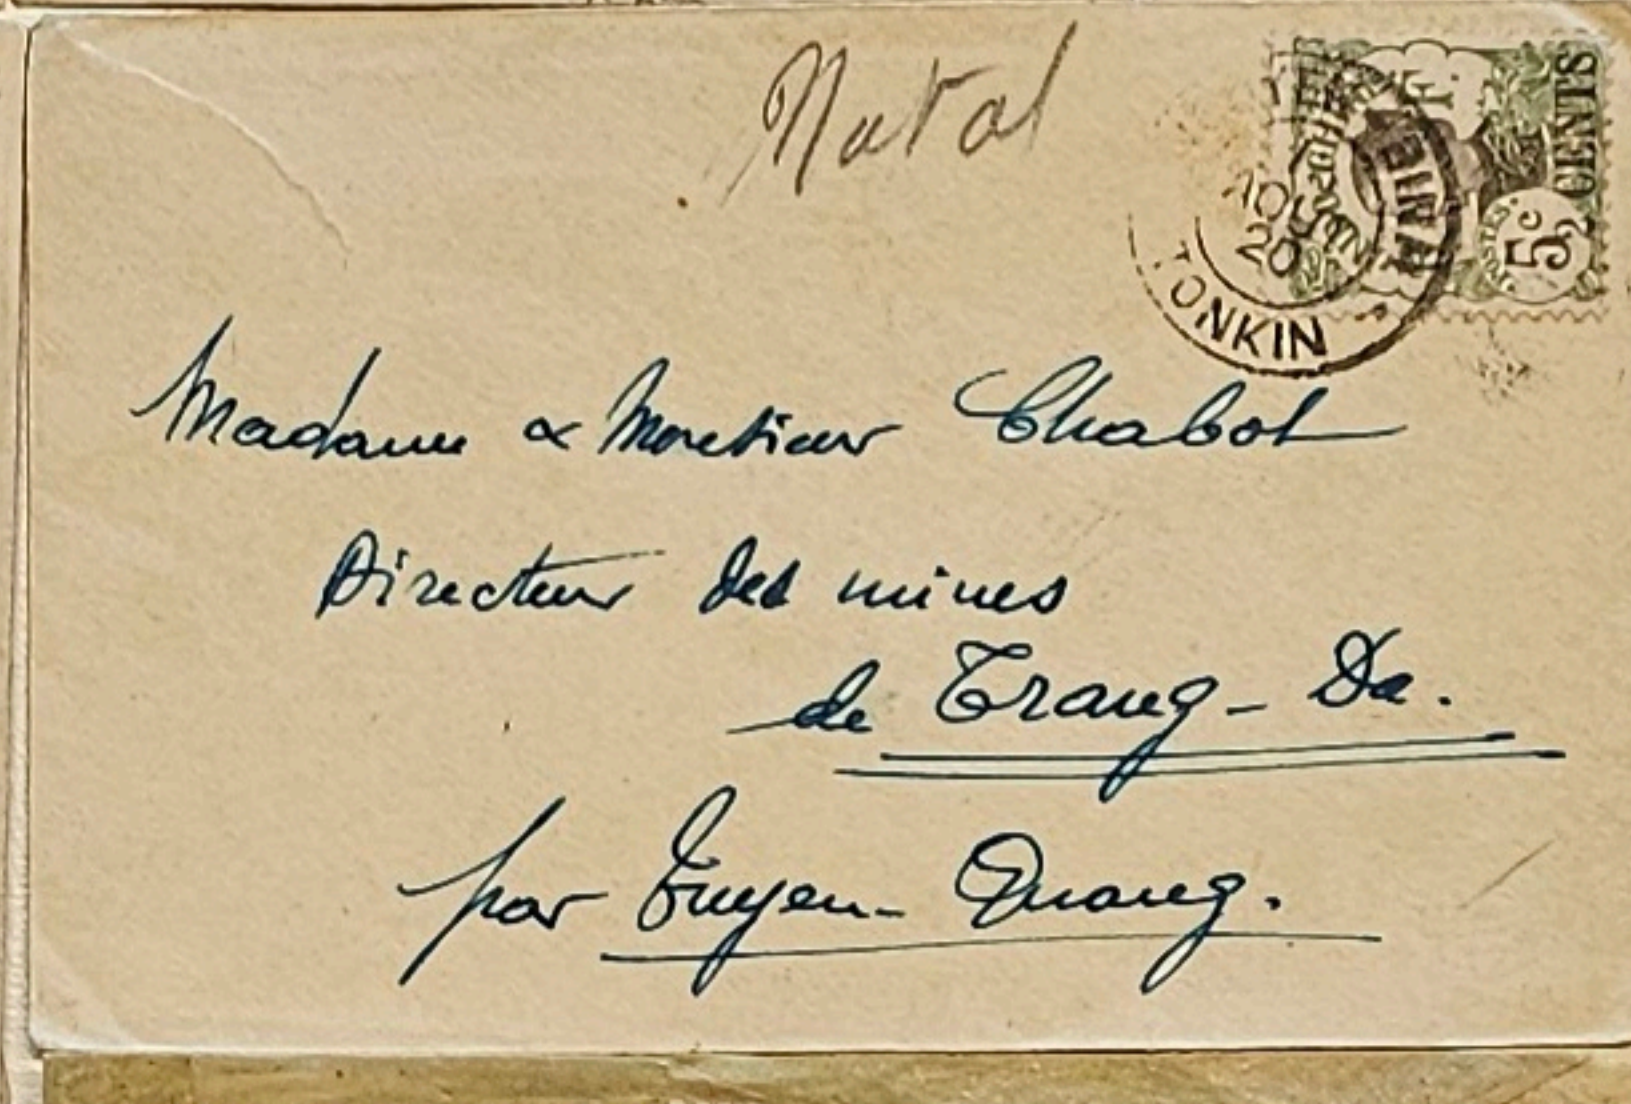 Natal
2 CENTS
5c
10
20
TONKIN
Madame & Monsieur Chabot
Directeur des mines
de Trang-Da.
par Tuyen-Quang.